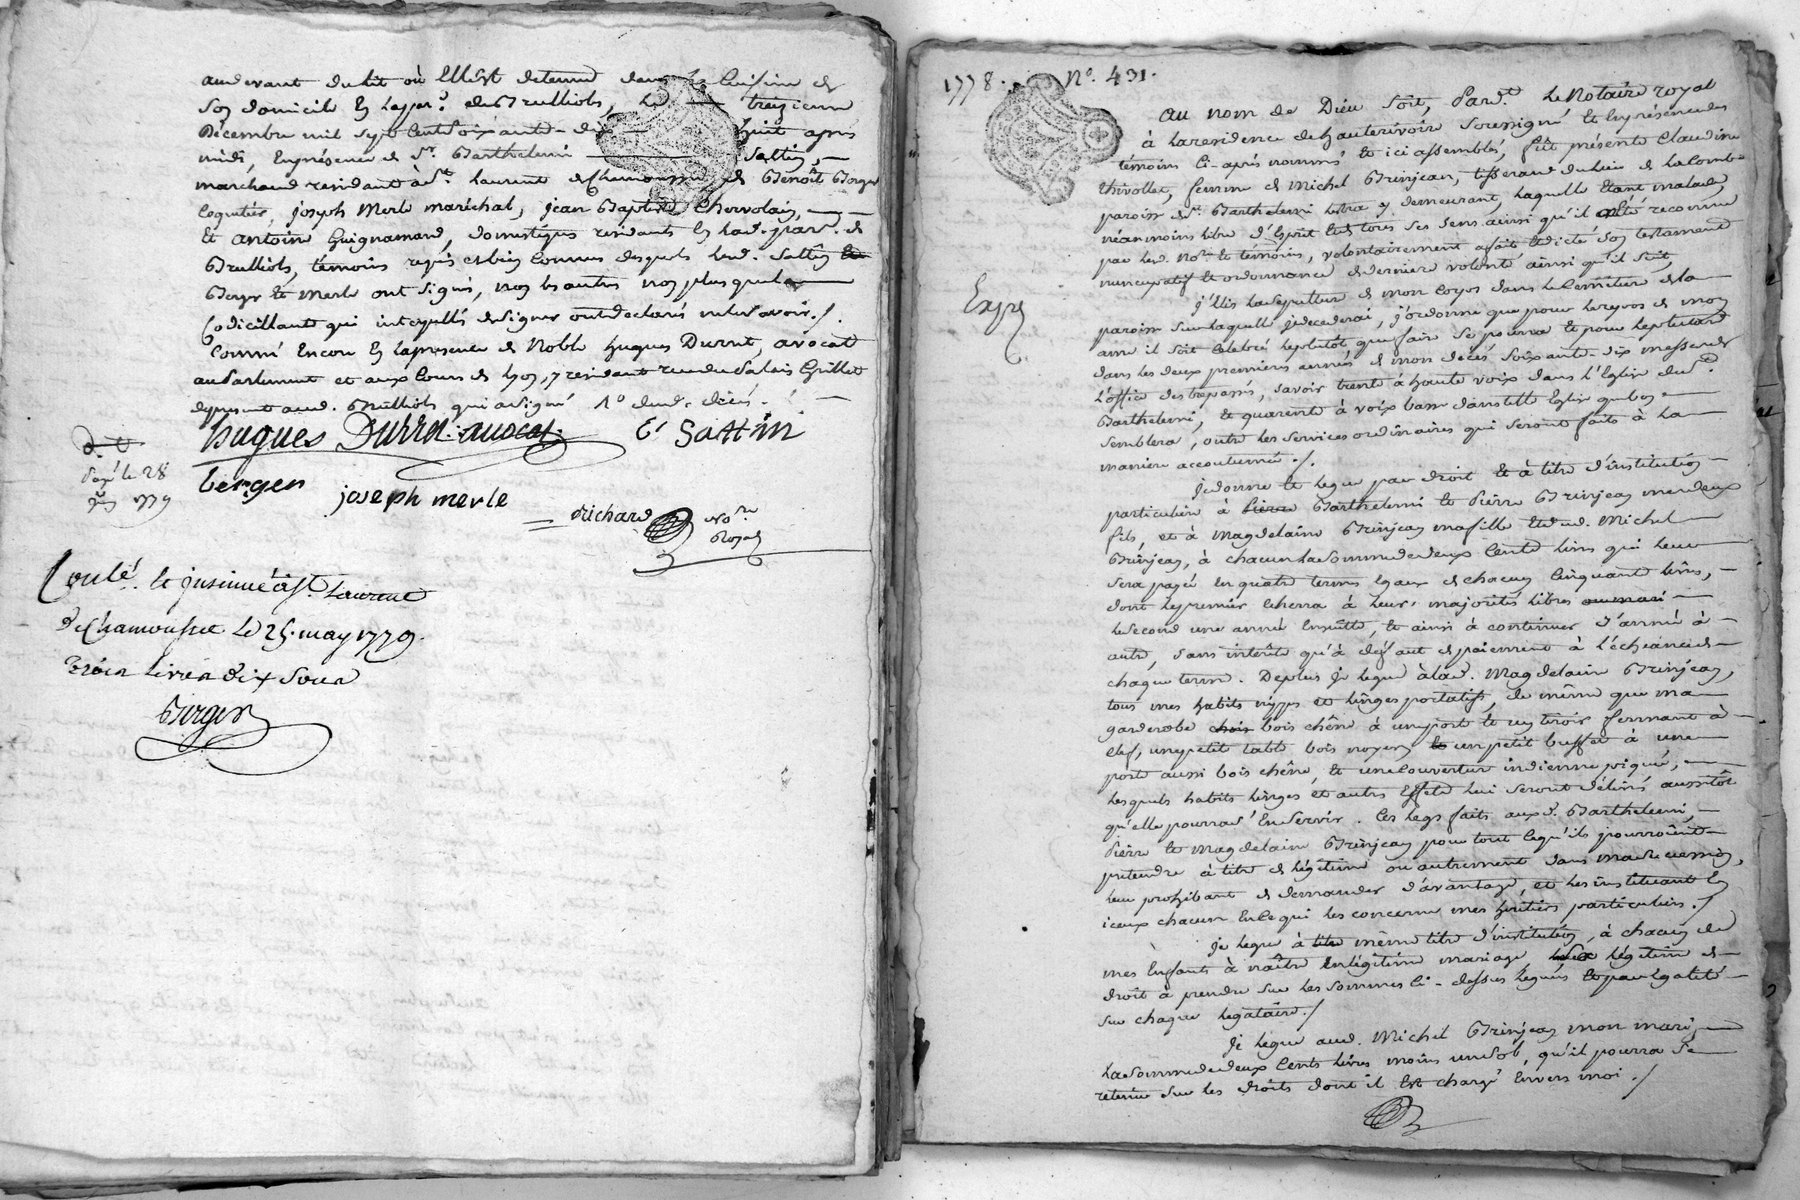 audevant du lit où Ell'est detenue dans la Cuisine de
son domicile En lad. par.e de Brulliols, Le treizieme
Décembre mil sept Cent Soixante-dix huit après
midi, En présence de Sr. Barthelemi Sattin,
marchand residant à St. Laurent de Chamousset, de Benoît Berger
joseph Merle maréchal, jean Baptiste Chervolain,
Et antoine Guignamand, domestiques residants En lad. par. de
Brulliols, témoins requis et bien Connus desquels lesd. Sattin
Berger Et Merle ont signé, non les autres non plus que la
Codicillante qui interpellés de signer ont declaré ne le savoir./.
Comme Encore En la presence de Noble hugues Durret, avocat
au Parlement et aux Cours de lyon, y residant rue du Palais Grillet
de present aud. Brulliols qui a signé
hugues Durret avocat. B. Sattin
berger
joseph merle
Richard No.re Royal
le 28
1779
Conlé. Et insinué à St. Laurent
de Chamousset Le 25. may 1779.
trois Livres dix sous
Berger
1778. No. 431.
Au nom de Dieu soit, Pard.t Le Notaire royal
à la residence de hauterivoire soussigné Et En présence des
témoins Ci-après nommés Et ici assemblés, fût présente Claudine
thivollet, femme de Michel Brinjean, tisserand du lieu de la Combe
paroisse de St. Barthelemi lestra y demeurant, Laquelle Etant malade,
néanmoins libre d'Esprit Et de tous ses sens ainsi qu'il a été reconnu
par led. No.re Et témoins, volontairement a fait Et dicté son testament
nuncupatif Et ordonnance de derniere volonté ainsi qu'il suit,
Exp.
j'Elis la sepulture de mon corps dans le Cimetiere de la
paroisse sur laquelle je decederai, j'ordonne que pour le repos de mon
ame il soit Celebré le plutôt que faire se pourra Et pour le plus tard
dans les deux premieres années de mon décès soixante-dix messes de
l'office des trepassés, savoir trente à haute voix dans l'Eglise dud. St.
Barthelemi, Et quarente à voix basse dans telle Eglise qu'on
semblera, outre les services ordinaires qui seront faits à la
maniere accoutumée./.
Je donne Et legue par droit Et à titre d'institution
particuliere à Pierre Barthelemi Et Pierre Brinjean mes deux
fils, et à Magdelaine Brinjean ma fille Et dud. Michel
Brinjean, à chacun la somme de deux Cents livres qui leur
sera payée En quatre termes Egaux de chacun Cinquante livres,
dont le premier Echerra à leurs majorités libres ou mari
le second une année Ensuitte, Et ainsi à continuer d'année à
autre, sans intérêts qu'à defaut de paiement à l'écheance de
chaque terme. De plus je legue à lad. Magdelaine Brinjean,
tous mes habits nippes et linges portatifs, de même que ma
garderobe bois chêne à une porte Et un tiroir fermant à
clef, une petite table bois noyer, un petit buffet à une
porte aussi bois chêne, Et une Couverture indienne piquée,
lesquels habits linges et autres Effets lui seront délivrés aussitôt
qu'elle pourra s'En servir. Les legs faits auxd. Barthelemi,
Pierre Et Magdelaine Brinjean pour tout Ce qu'ils pourroient
pretendre à titre de légitime ou autrement dans ma succession,
leur prohibant de demander d'avantage, et les instituant En
iceux chacun En Ce qui les concerne mes heritiers particuliers./
Je legue à titre même titre d'institution, à chacun de
mes Enfants à naître En légitime mariage, légitime de
droit à prendre sur les sommes Ci-dessus leguées Et par Egalité
sur chaque legataire./
Je legue aud. Michel Brinjean mon mari,
la somme de deux Cents livres moins un sol, qu'il pourra se
retenir sur les droits dont il Est chargé Envers moi./